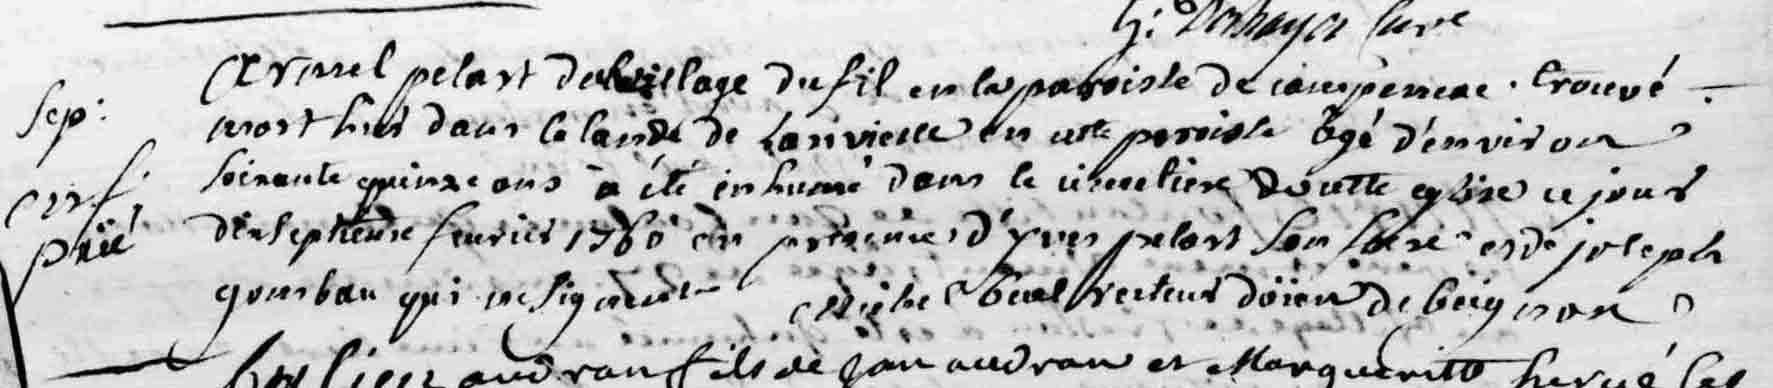 Deshayes Curé
Armel pelart du village du fil en la paroisse de campeneac. trouvé
Sep: mort hier dans la lande de Lanvieille en cette paroisse âgé d'environ
soixante quinze ans a été inhumé dans le cimetiere de cette eglise ce jour
dixseptieme fevrier 1760 en presence d'Yves pelart son frere et de joseph
gombau qui ne signent recteur doien de beignon
audran fils de jan audran et Margueritte hervé